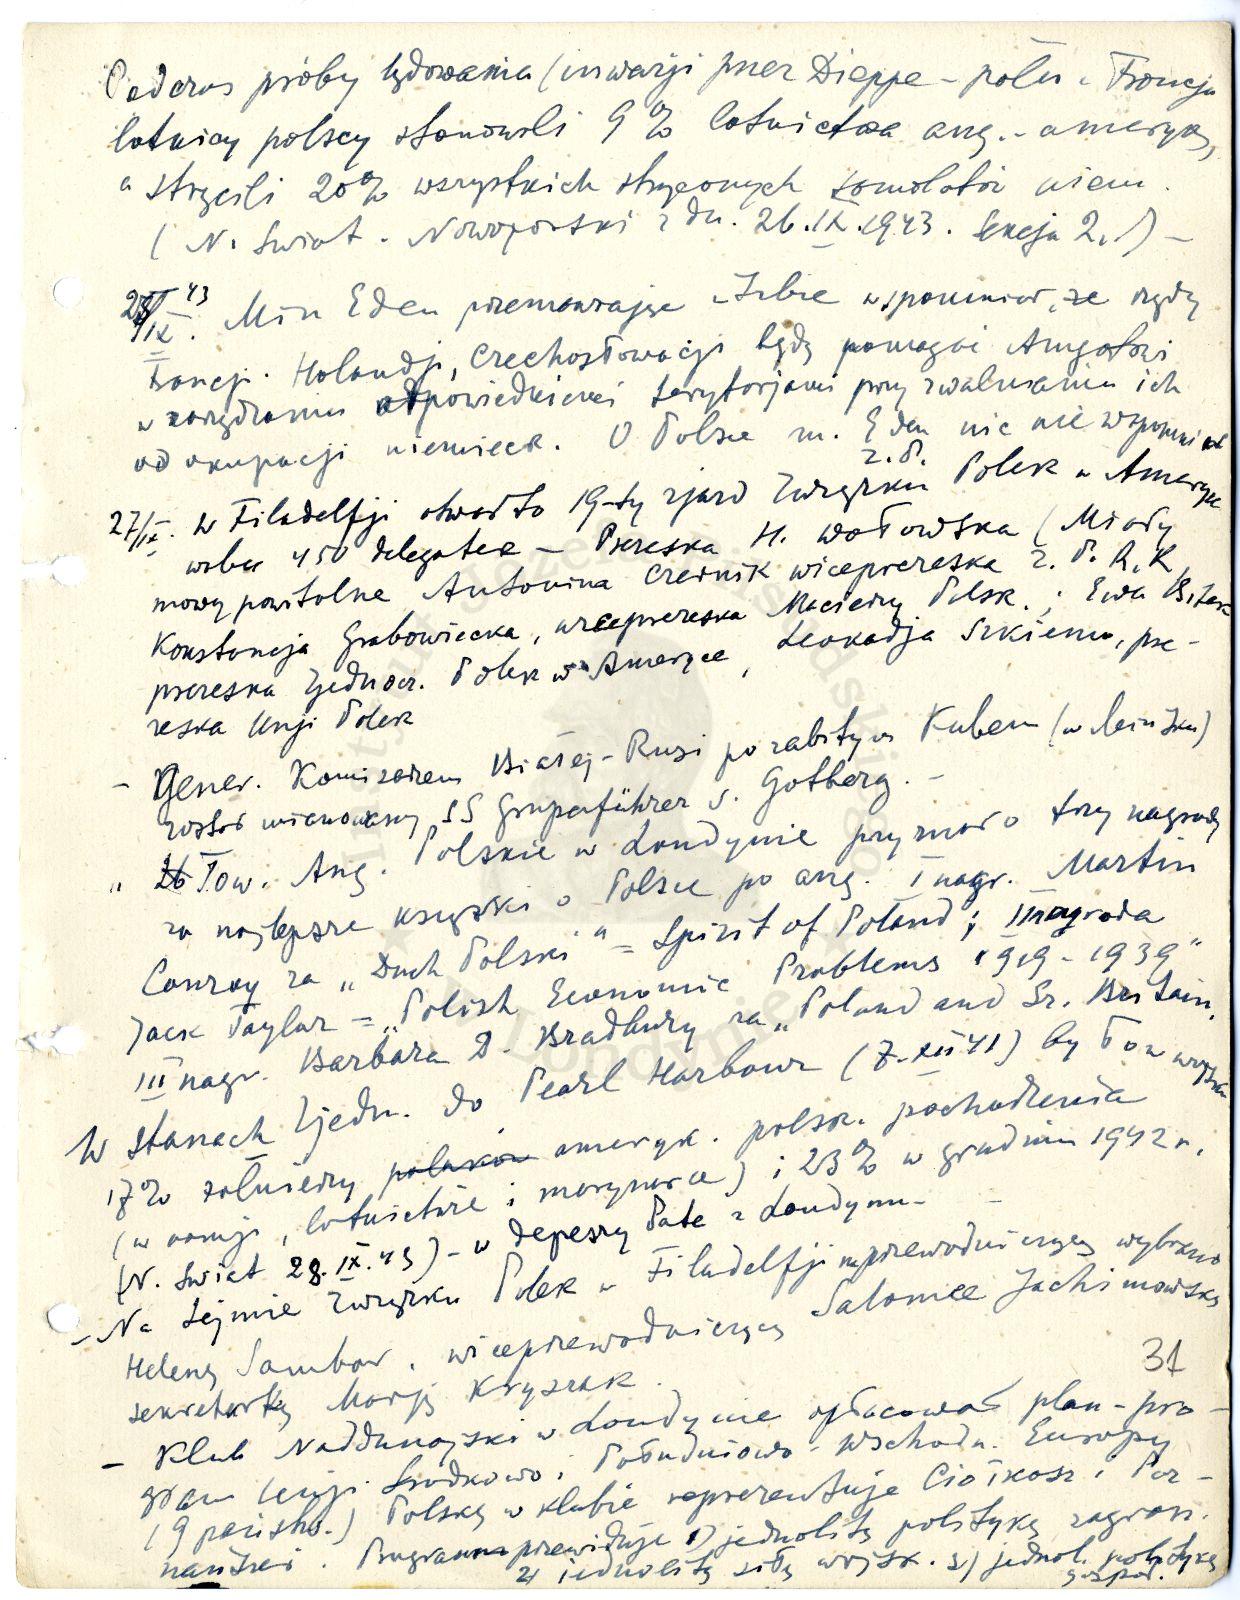 Podczas próby lądowania (inwazji przez Dieppe - półn. Francja
lotnicy polscy stanowili 9% lotnictwa ang. - ameryk,
a strącili 20% wszystkich strąconych samolotów niem.
(N. Świat. Nowojorski z dn. 26.IX.1943. Sekcja 2.) -
28/IX 43. Min Eden przemawiając w Izbie wspomniał, że rządy
Francji. Holandji, Czechosłowacji będą pomagać Anglosasi
w zarządzaniu odpowiedniemi terytorjami przy zwalnianiu ich
od okupacji niemieck. O Polsce m. Eden nic nie wspomniał
27/IX. w Filadelfji otwarto 19-ty zjazd Związku Polek w Ameryce
Z.P.
wobec 450 delegatek - Prezeska H. Wołowska (Miały
mowy powitalne Antonina Czernik wiceprezeska Z.P.R.K,
Konstancja Grabowiecka, wiceprezeska Macierzy Polsk.; Ewa
prezeska Zjednocz. Polek w Ameryce, Leokadja, pre-
zeska Unji Polek
- Gener. Komisarzem Białej-Rusi po zabitym Kubem (w Mińsku)
został mianowany SS Grupenführer v. Gotberg. -
" Tow. Ang. Polskie w Londynie przyznało trzy nagrody
za najlepsze książki o Polsce po ang. I nagr. Martin
Conroy za „Duch Polski" = Spirit of Poland; II nagroda
Jack Taylor = „Polish Economic Problems 1919-1939"
III nagr. Barbara D. Bradbury za „Poland and Gr. Britain.
W Stanach Zjedn. do Pearl Harbour (7.XII 41) było w wojsku
17% żołnierzy polaków ameryk. polsk. pochodzenia
(w armji, lotnictwie i marynarce) i 23% w grudniu 1942 r.
(N. Świat 28.IX.43) - w depeszy Pata z Londynu -
- Na Sejmie Związku Polek w Filadelfji na przewodniczącą wybrano
Helenę Sambor, wiceprzewodniczącą Salomeę Jachimowską
sekretarką Marję Kryszak.
31
- Klub Naddunajski w Londynie opracował plan - pro-
gram Unji Środkowo i Południowo - Wschodn. Europy
(9 państw.) Polskę w klubie reprezentuje Ciołkosz i Poz-
nański. Program przewiduje 1) jednolitą politykę zagran.
2) jednolitą siłę wojsk. 3) jednol. politykę
gospod.